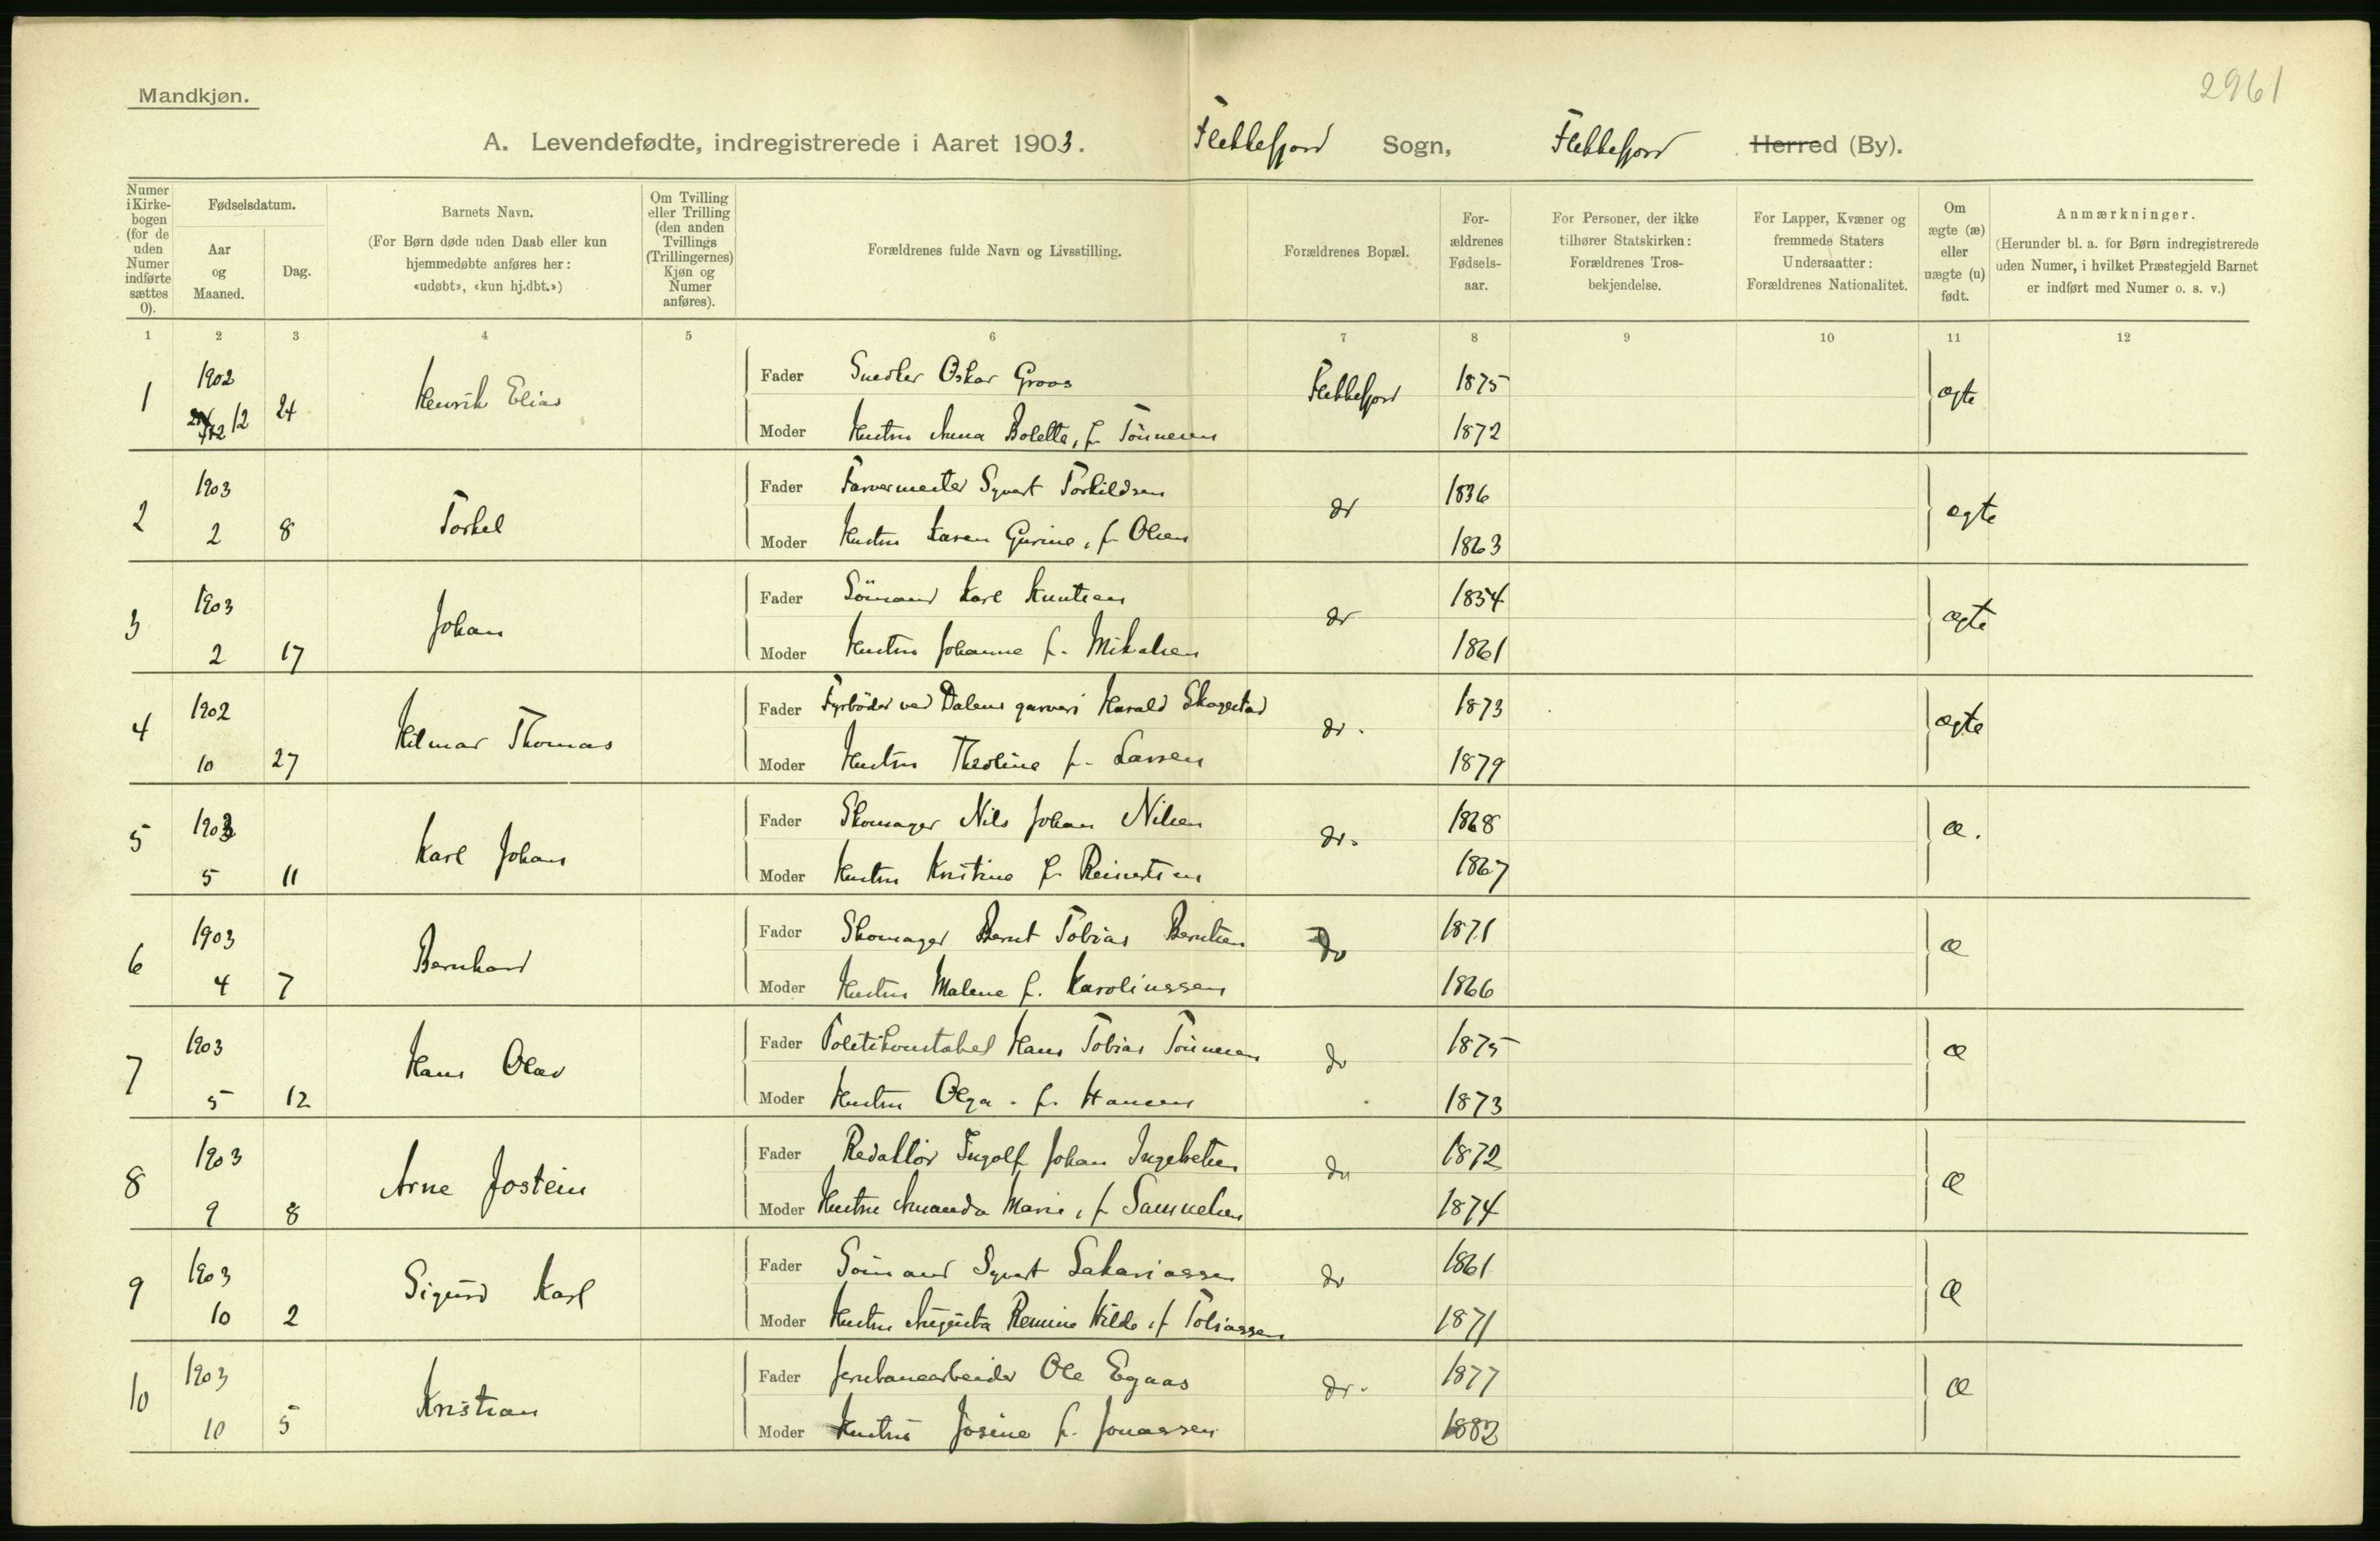 2961
Mandkjøn.
A. Levendefødte, indregistrerede i Aaret 1903. Flekkefjord Sogn, Flekkefjord Herred (By).
Numer i Kirkebogen (for de uden Numer indførte sættes 0). Fødselsdatum. Aar og Maaned. Dag. Barnets Navn. (For Børn døde uden Daab eller kun hjemmedøbte anføres her: «udøbt», «kun hj.dbt.») Om Tvilling eller Trilling (den anden Tvillings (Trillingernes) Kjøn og Numer anføres). Forældrenes fulde Navn og Livsstilling. Forældrenes Bopæl. Forældrenes Fødselsaar. For Personer, der ikke tilhører Statskirken: Forældrenes Trosbekjendelse. For Lapper, Kvæner og fremmede Staters Undersaatter: Forældrenes Nationalitet. Om ægte (æ) eller uægte (u) født. Anmærkninger. (Herunder bl. a. for Børn indregistrerede uden Numer, i hvilket Præstegjeld Barnet er indført med Numer o. s. v.)
1 2 3 4 5 6 7 8 9 10 11 12
1 1902 12 24 Henrik Elias Fader Snedker Oskar Groos Flekkefjord 1875 ægte
Moder Hustru Anna Bolette, f. Tönnesen 1872
2 1903 2 8 Torkel Fader Farvermester Syvert Torkildsen do 1836 ægte
Moder Hustru Karen Gurine, f. Olsen 1863
3 1903 2 17 Johan Fader Sömand Karl Knutsen do 1854 ægte
Moder Hustru Johanne f. Mikalsen 1861
4 1902 10 27 Hilmar Thomas Fader Fyrböder ved Dalens garveri Harald Skogestad do. 1873 ægte
Moder Hustru Theoline f. Larsen 1879
5 1903 5 11 Karl Johan Fader Skomager Nils Johan Nilsen do. 1868 æ.
Moder Hustru Kristine f. Reinertsen 1867
6 1903 4 7 Bernhard Fader Skomager Bernt Tobias Berntsen do 1871 æ
Moder Hustru Malene f. Karolinssen 1866
7 1903 5 12 Hans Olav Fader Politikonstabel Hans Tobias Tönnesen do 1875 æ
Moder Hustru Olga f. Hansen 1873
8 1903 9 8 Arne Jostein Fader Redaktör Ingolf Johan Ingebretsen do 1872 æ
Moder Hustru Amanda Marie, f. Samuelsen 1874
9 1903 10 2 Sigurd Karl Fader Sömand Syvert Sakariassen do 1861 æ
Moder Hustru Augusta Remine Hilda, f. Tobiassen 1871
10 1903 10 5 Kristian Fader Jernbanearbeider Ole Egaas do. 1877 æ
Moder Hustru Josine f. Jonassen 1882